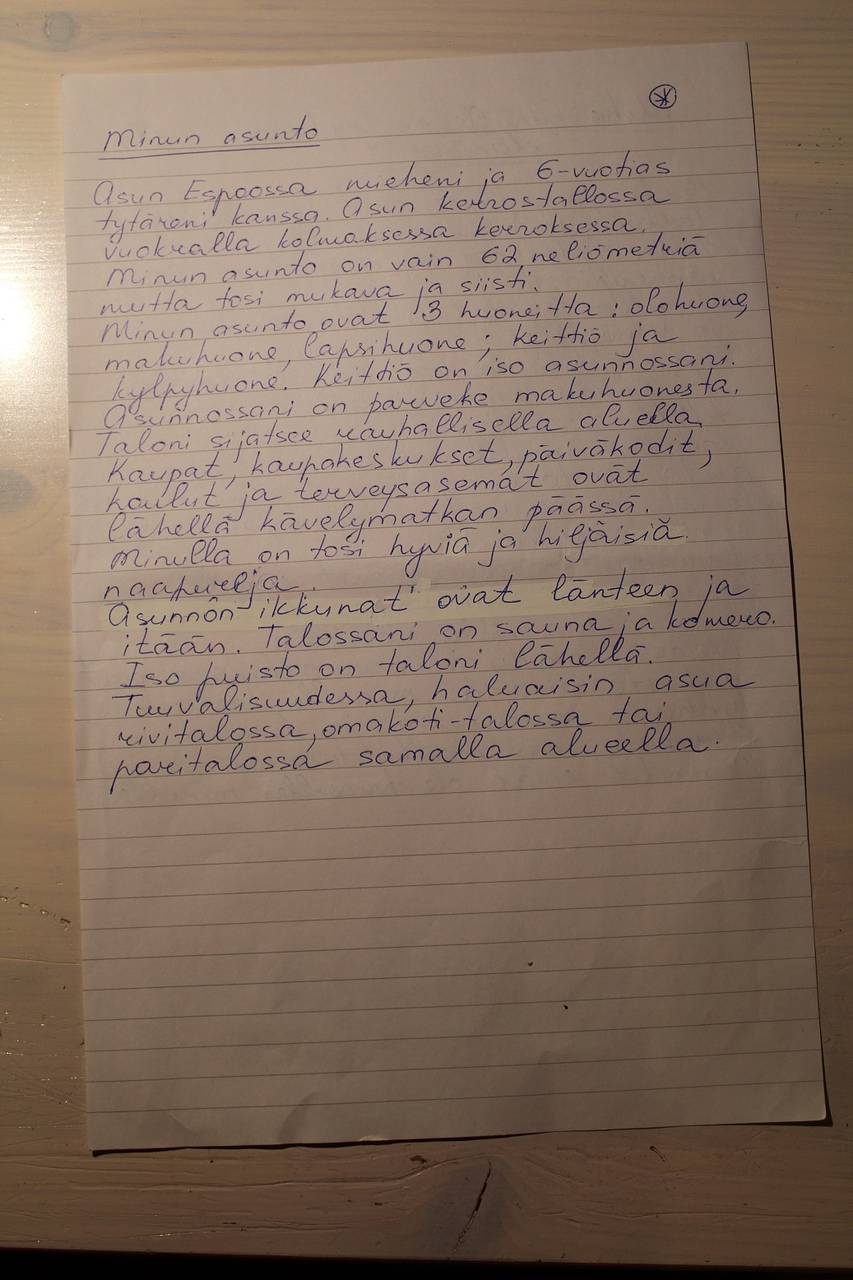 Minun asunto
Asun Espoossa mieheni ja 6-vuotias
tytäreni kanssa. Asun kerrostallossa
vuokralla kolmaksessa kerroksessa.
Minun asunto on vain 62 neliömetriä
mutta tosi mukava ja siisti.
Minun asunto ovat 3 huoneitta: olohuone,
makuhuone, lapsihuone; keittiö ja
kylpyhuone. Keittiö on iso asunnossani.
Asunnossani on parveke makuhuonesta.
Taloni sijatsee rauhallisella aluella.
Kaupat, kaupakeskukset, päiväkodit,
koulut ja terveysasemat ovat
lähellä kävelymatkan päässä.
Minulla on tosi hyviä ja hiljäisiä
naapurelja.
Asunnon ikkunat ovat länteen ja
itään. Talossani on sauna ja komero.
Iso puisto on taloni lähellä.
Tuuvalisuudessa, haluaisin asua
rivitalossa, omakoti-talossa tai
paritalossa samalla alueella.